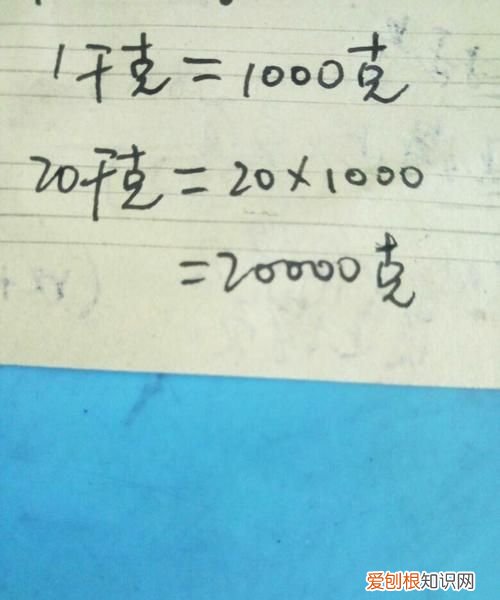 1千克=1000克
20千克=20×1000
=20000克
爱刨根知识网